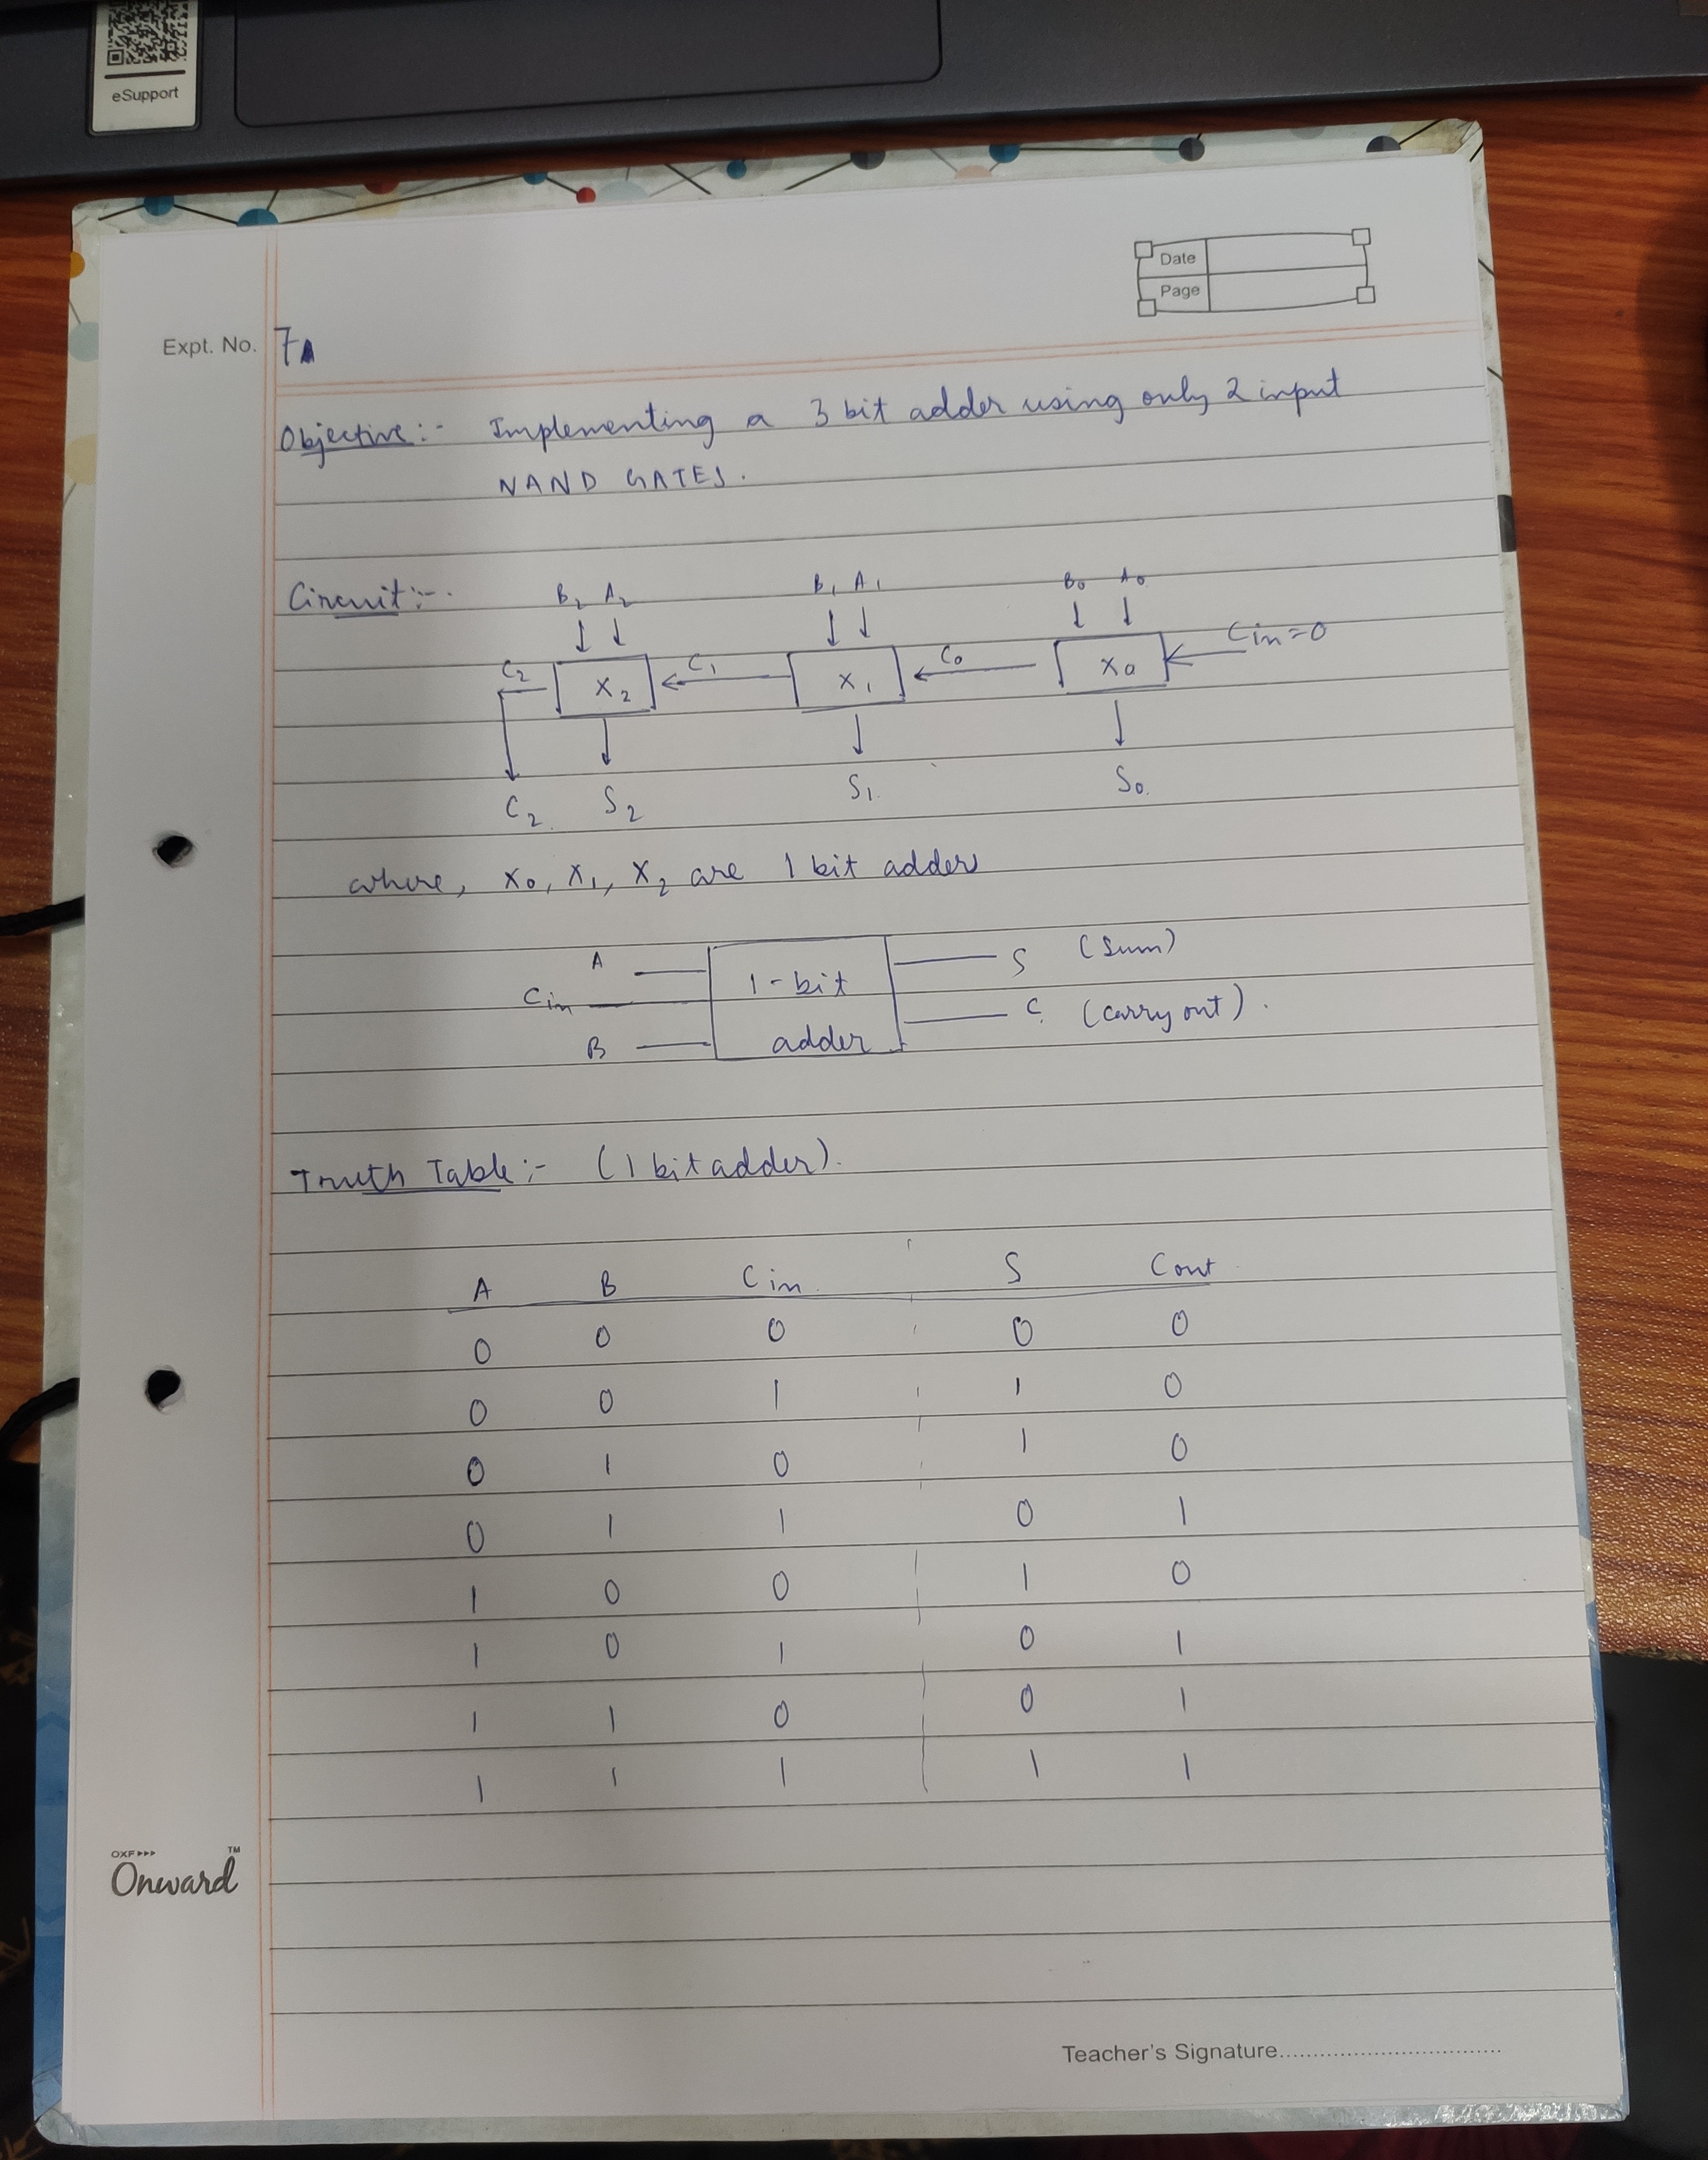 eSupport
Date
Page
Expt. No. 7A
Objective :- Implementing a 3 bit adder using only 2 input
NAND GATES.
Circuit :-
B2 A2 B1 A1 B0 A0
C2 X2 C1 X1 C0 X0 Cin=0
C2 S2 S1 S0
where, X0, X1, X2 are 1 bit adders
A 1-bit S (Sum)
Cin C (carry out).
B adder
Truth Table :- (1 bit adder).
A B Cin S Cout
0 0 0 0 0
0 0 1 1 0
0 1 0 1 0
0 1 1 0 1
1 0 0 1 0
1 0 1 0 1
1 1 0 0 1
1 1 1 1 1
OXF
Onward™
Teacher's Signature..................................